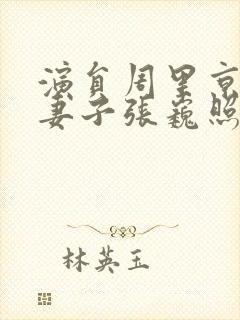 演員周里京
妻子張巍照
林英玉